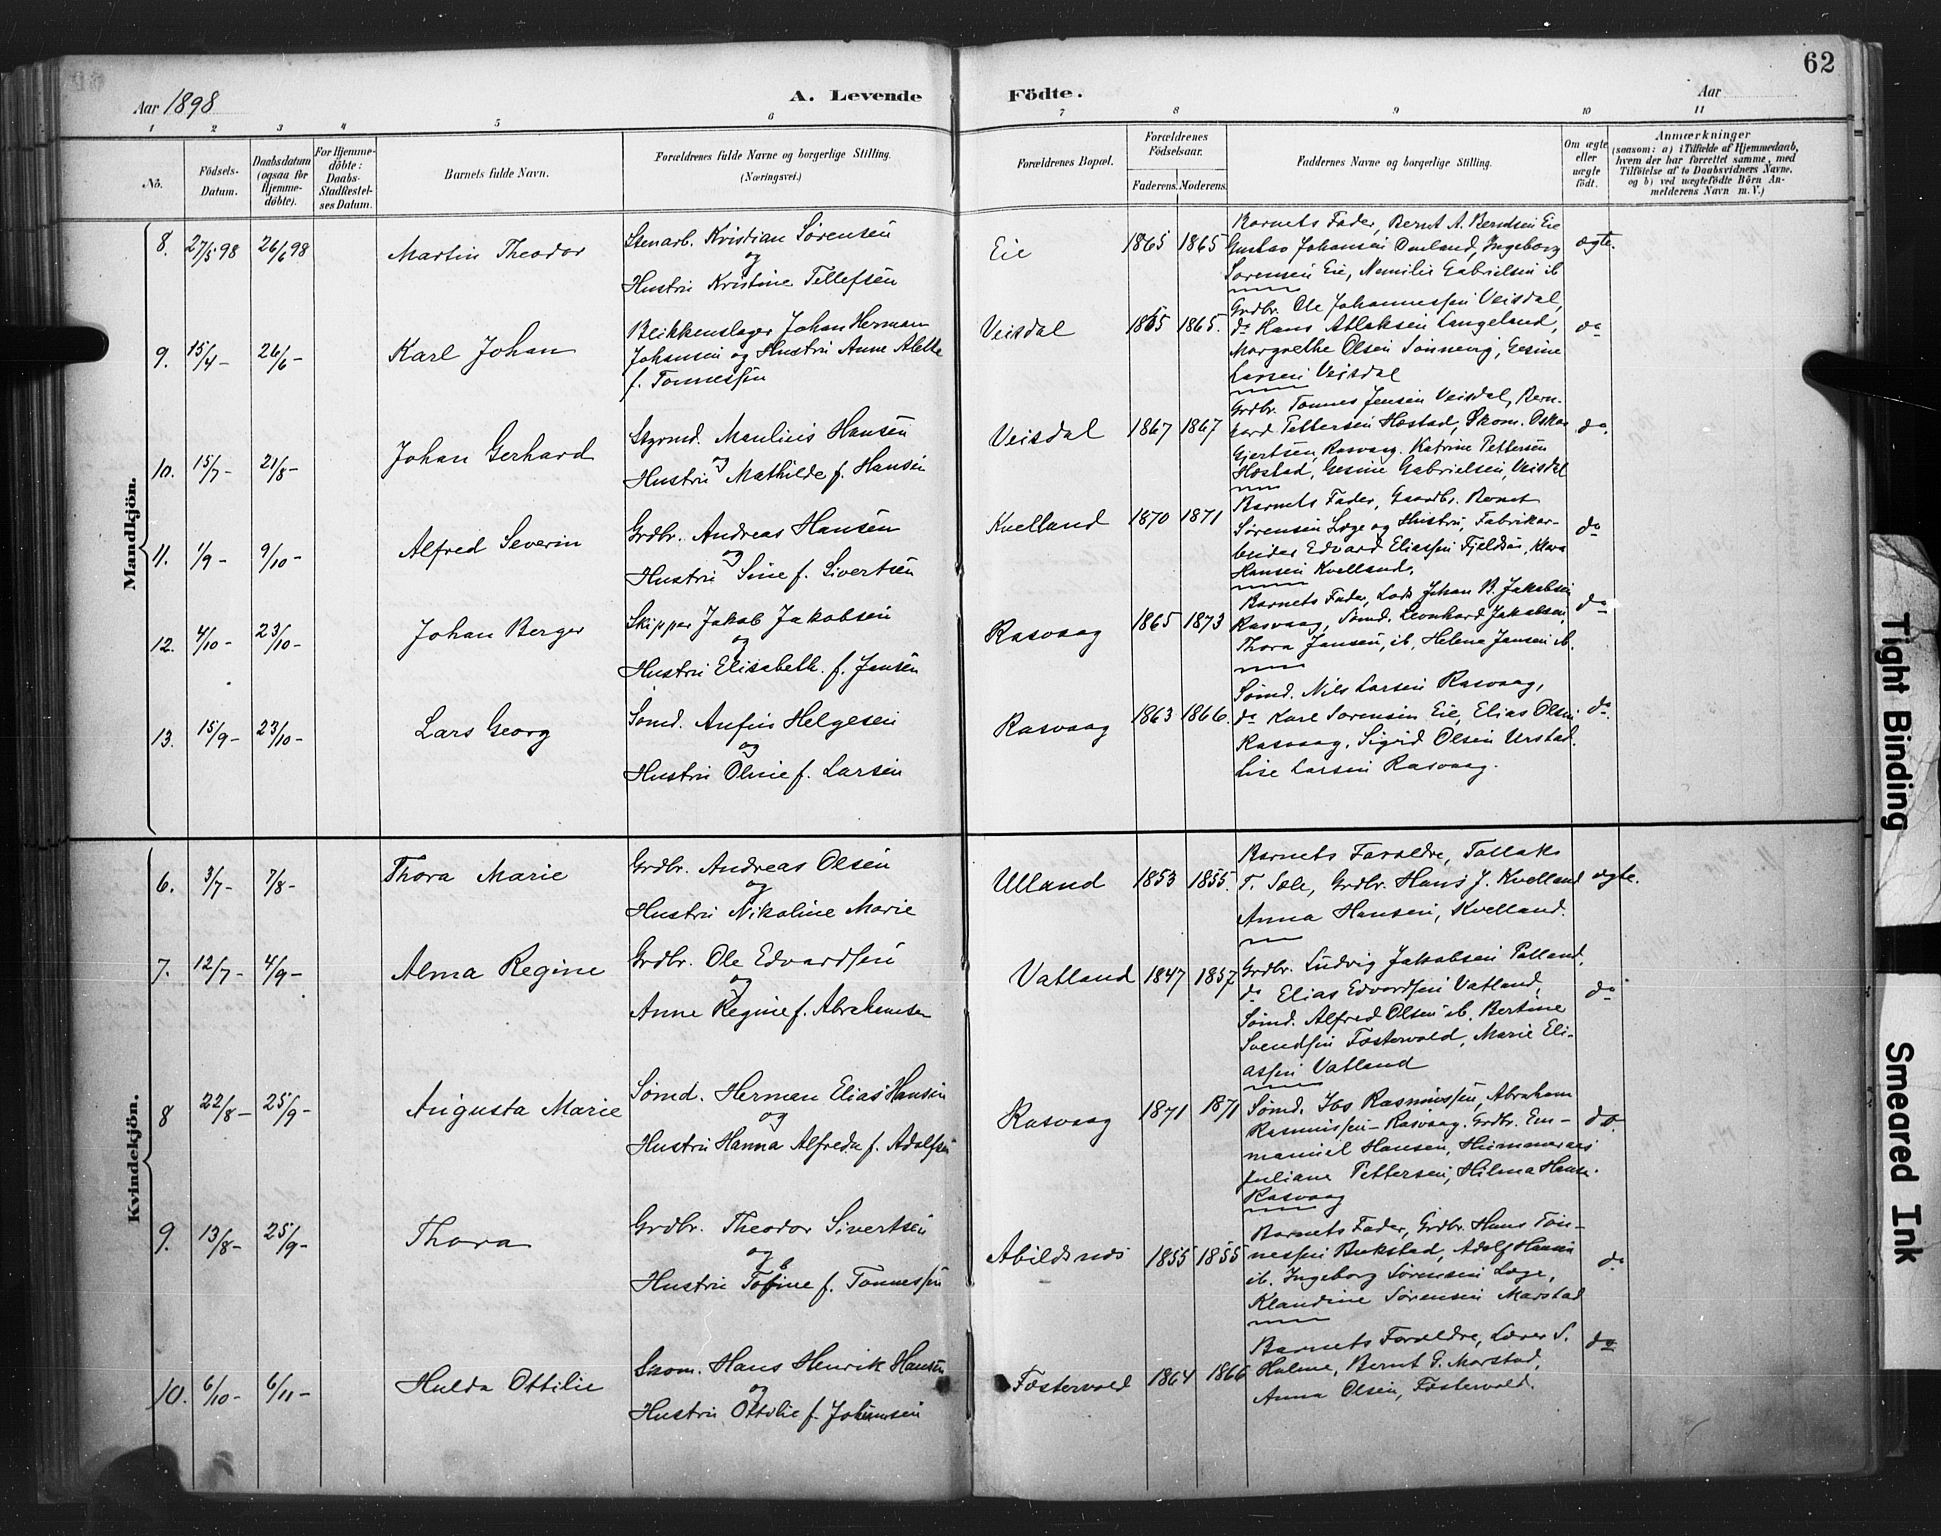 62
Aar 1898
A. Levende
Födte.
Aar
1 2 3 4 5 6 7 8 9 10 11
No.
Födsels-
Datum.
Daabsdatum
(ogsaa for
Hjemme-
döbte).
For Hjemme-
döbte:
Daabs-
Stadfæstel-
ses Datum.
Barnets fulde Navn.
Forældrenes fulde Navne og borgerlige Stilling.
(Næringsvei.)
Forældrenes Bopæl.
Forældrenes
Födselsaar.
Faderens. Moderens.
Faddernes Navne og borgerlige Stilling.
Om ægte
eller
uægte
födt.
Anmærkninger
(saasom: a) i Tilfælde af Hjemmedaab,
hvem der har forrettet samme, med
Tilföielse af to Daabsvidners Navne,
og b) ved uægtefödte Börn An-
melderens Navn m. V.)
Mandkjön.
8. 27/5 98 26/6 98 Martin Theodor
Stenarb. Kristian Sørensen
og
Hustru Kristine Tellefsen
Eie 1865 1865
Barnets Fader, Bernt A. Berntsen Eie
Gustav Johansen Omland, Ingeborg
Sørensen Eie, Gabrielsen ib
ægte.
9. 15/4 - 26/6 - Karl Johan
Blikkenslager Johan Herman
Johansen og Hustru Anne Alette
f. Tønnessen
Veisdal 1865 1865.
Grdbr. Ole Johannessen Veisdal,
do Hans Atlaksen Langeland,
Margrethe Olsen Sønnevig, Gesine
Larsen Veisdal
do
10. 15/7 - 21/8 - Johan Gerhard
Styrmd. Maulius Hansen
og
Hustru Mathilde f. Hansen
Veisdal 1867 1867
Grdbr. Tønnes Jensen Veisdal, Bern-
hard Pettersen Hæstad, Skom. Oskar
Gjertsen, Rasvaag. Katrine Pettersen
Hæstad, Gesine Gabrielsen, Veisdal
do.
11. 1/9 - 9/10 - Alfred Severin
Grdbr. Andreas Hansen
og
Hustru Sine f. Sivertsen
Kvelland 1870 1871
Barnets Fader, Gaardbr. Bernt
Sørensen Læge og Hustru, Fabrikar-
beider Edvard Eliassen Fjeldsaa, Klara
Hansen Kvelland.
do
12. 4/10 - 23/10 - Johan Berger
Skipper Jakob Jakobsen
og
Hustru Elisabeth. f. Jansen
Rasvaag 1865 1873
Barnets Fader, Lods Johan B. Jakobsen
Rasvaag, Sømd. Leonhard Jakobsen,
Thora Jansen, ib. Helene Jansen ib.
do
13. 15/9 - 23/10 - Lars Georg
Sømd. Anfin Helgesen
og
Hustru Oline f. Larsen
Rasvaag 1863 1866.
Sømd. Nils Larsen Rasvaag,
do Karl Sørensen Eie, Elias Olsen
Rasvaag. Sigrid Olsen Urstad.
Lise Larsen Rasvaag.
do.
Kvindekjön.
6. 3/7 - 7/8 - Thora Marie
Grdbr. Andreas Olsen
og
Hustru Nikoline Marie
Ulland 1853 1855.
Barnets Forældre, Tallak
T. Sæle, Grdbr. Hans J. Kvelland
Anna Hansen, Kvelland.
ægte.
7. 12/7 - 4/9 - Alma Regine
Grdbr. Ole Edvardsen
og
Anne Regine f. Abrahamsen
Vatland 1847 1857
Grdbr. Ludvig Jakobsen Palland,
do Elias Edvardsen Vatland,
Sømd. Alfred Olsen ib. Bertine
Svendsen Fostervold, Marie Eli-
assen Vatland
do
8 22/8 - 25/9 - Augusta Marie
Sømd. Herman Elias Hansen
og
Hustru Hanna Alfreda f. Adolfsen
Rasvaag 1871 1871
Sømd. Jbs Rasmussen, Abraham
Rasmussen - Rasvaag. Grdbr. Em-
manuel Hansen,
Juliane Pettersen, Hilma Hansen.
Rasvaag
do.
9. 13/8 - 25/9 - Thora
Grdbr. Theodor Sivertsen
og
Hustru Tobine f. Tønnessen
Abildsnæs 1855 1855
Barnets Fader, Grdbr. Hans Tøn-
nessen Bukstad, Adolf Hansen
ib. Ingeborg Sørensen Læge,
Klaudine Sørensen Marstad
do
10. 6/10 - 6/11 - Hulda Ottilie
Skom. Hans Henrik Hansen
og
Hustru Ottilie f. Johannesen
Fostervold 1864 1866
Barnets Forældre, Lærer S.
Holme, Bernt G. Marstad,
Anna Olsen, Fostervold.
do
Tight Binding
Smeared Ink